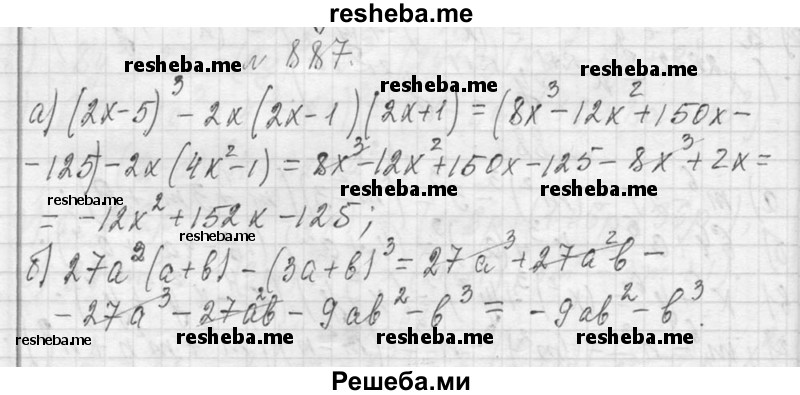 resheba.me
№ 887.
resheba.me resheba.me
resheba.me
а) (2x-5)³ - 2x(2x-1)(2x+1) = (8x³-12x²+150x-
-125)-2x(4x²-1) = 8x³-12x²+150x-125-8x³+2x=
resheba.me resheba.me resheba.me
= -12x²+152x-125;
resheba.me
б) 27a²(a+b) - (3a+b)³ = 27a³+27a²b-
-27a³-27a²b-9ab²-b³ = -9ab²-b³.
resheba.me resheba.me resheba.me resheba.me
Решеба.ми